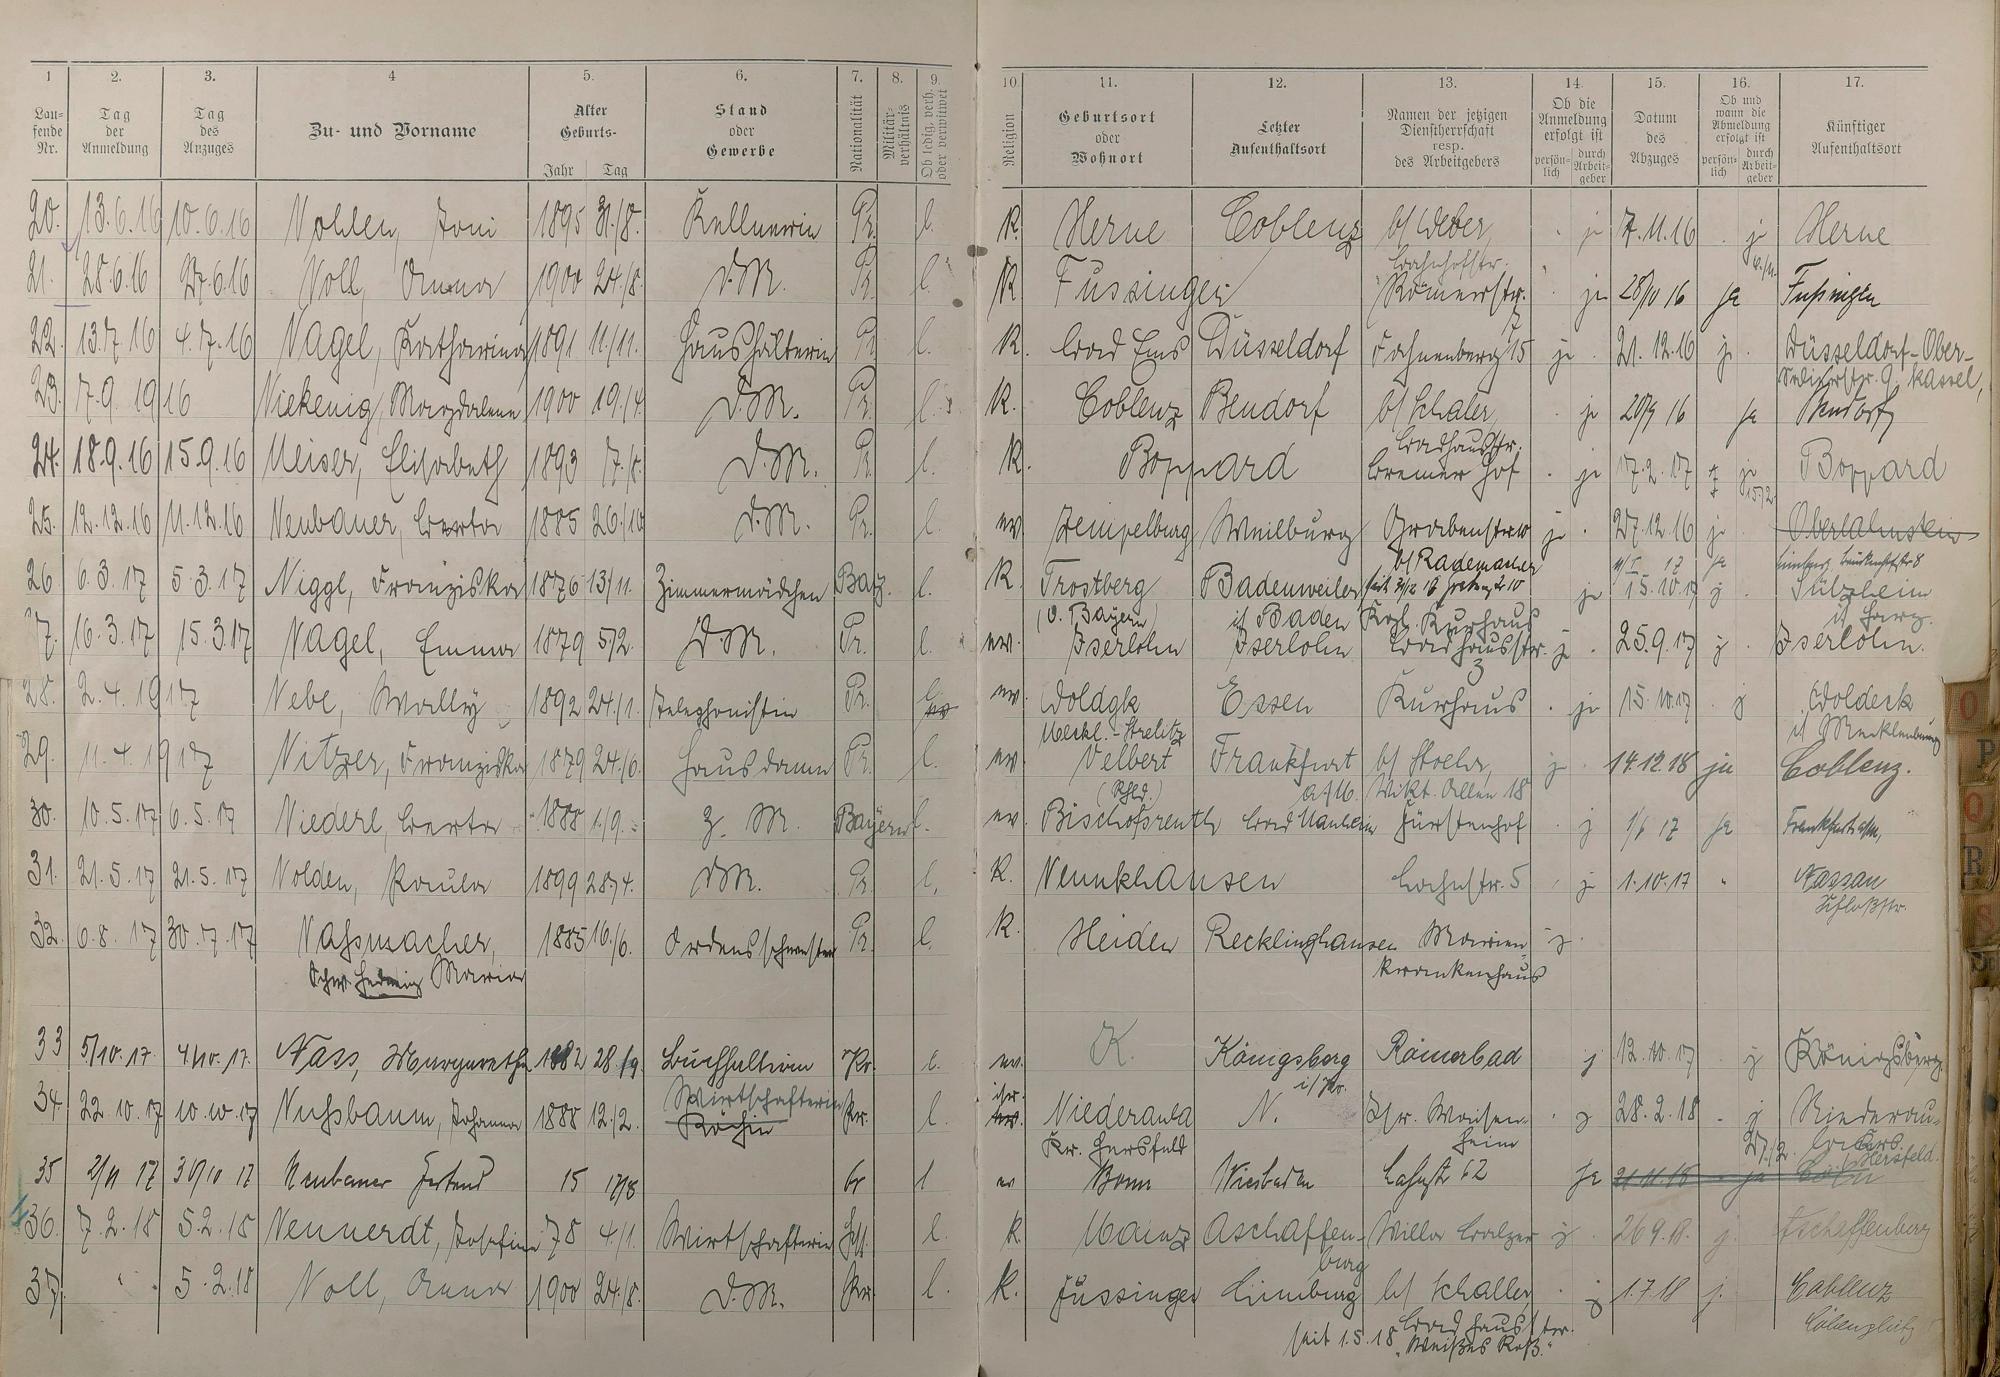 1 2. 3. 4 5. 6. 7. 8. 9. 10 11. 12. 13. 14. 15. 16. 17.
Laufende Nr. Tag der Anmeldung Tag des Anzuges Zu- und Vorname Alter Geburts- Jahr Tag Stand oder Gewerbe Nationalität Militärverhältnis Ob ledig, verh. oder verwitwet Religion Geburtsort oder Wohnort Letzter Aufenthaltsort Namen der jetzigen Dienstherrschaft resp. des Arbeitgebers Ob die Anmeldung erfolgt ist persönlich durch Arbeitgeber Datum des Abzuges Ob und wann die Abmeldung erfolgt ist persönlich durch Arbeitgeber Künftiger Aufenthaltsort
20. 13.6.16 10.6.16 Nohlen, Toni 1895 31./8. Kellnerin Pr. l. K. Herne Coblenz b/ Weber, Bahnhofstr. . ja 7.11.16 . ja Herne
21. 28.6.16 27.6.16 Noll, Anna 1900 24./8. D.M. Pr. l. K. Fussingen Römerstr. . ja 28/10 16 ja Fussingen
22. 13.7.16 4.7.16 Nagel, Katharina 1891 11./11. Haushälterin Pr l. K. Bad Ems Düsseldorf Fachnenberg 15 ja . 21.12.16 ja . Düsseldorf-Oberkassel,
23. 7.9.1916 Niekenig, Magdalene 1900 19./4. D.M. Pr. l. K. Coblenz Bendorf b/ Schaler, Badhausstr. . ja 20/9 16 ja Bendorf
24. 18.9.16 15.9.16 Meiser, Elisabeth 1893 7./8. D.M. Pr. l. K. Boppard Bremer Hof . ja 17.2.17 ja 15/2 Boppard
25. 12.12.16 11.12.16 Neubauer, Berta 1885 26./10 D.M. Pr. l. ev. Zempelburg Weilburg Grabenstr 10 ja . 27.12.16 ja Oberlahnstein
b/ Rademacher
26 6.3.17 5.3.17 Niggl, Franziska 1876 13/11. Zimmermädchen Bay. l. K. Trostberg (O. Bayern) Badenweiler i/ Baden Kgl. Kurhaus ja 15.10.17 j Sülzhein i/ Harz.
27. 16.3.17 15.3.17 Nagel, Emma 1879 5/2. D.M. Pr. l. ev. Iserlohn Iserlohn Badhausstr. 3 j . 25.9.17 j . Iserlohn.
28. 2.4.1917 Nebe, Wally 1892 24./1. Telephonistin Pr. l. ev. Woldegk Meckl.-Strelitz Essen Kurhaus . ja 15.10.17 . j Woldeck i/ Mecklenburg
29. 11.4.1917 Nitzer, Franziska 1879 24./6. Hausdame Pr. l. ev. Velbert (Rhld.) Frankfurt a/M. b/ Stoehr, Vikt. Allee 18 j . 14.12.18 ja Coblenz.
30. 10.5.17 6.5.17 Niederl, Berta 1888 1./9. Z. M. Bayern l. ev. Bischofsreuth Bad Nauheim Fürstenhof . j 1/6 17 ja Frankfurt a/M,
31. 21.5.17 21.5.17 Nolden, Paula 1899 28./4. D.M. Pr. l. K. Neunkhausen Lahnstr. 5 . j 1.10.17 " Nassau Schloßstr.
32. 6.8.17 30.7.17 Nassmacher, Maria Schw. Hedwig 1885 16./6. Ordensschwester Pr. l. K. Heiden Recklinghausen Marienkrankenhaus j.
33 5/10.17. 4/10.17. Nass, Margarethe 1882 28/9 Buchhalterin Pr. l. ev. K. Königsberg i/Pr. Römerbad j 12.10.17 . j Königsberg.
34. 22.10.17 10.10.17 Nußbaum, Johanna 1888 12./2. Wirtschafterin Köchin Pr. l isr. ev. Niederaula Kr. Hersfeld N. Isr. Waisenheim . j 28.2.18 . j 27./2. Niederaula Hersfeld.
35 2/11 17 30/10 17 Neubauer 15 17/8 l ev Bonn Wiesbaden Lahnstr 62 ja 21.11.18 - ja Cöln
36. 7.2.18 5.2.18 Nennerdt, Josefine 78 4./1. Wirtschafterin Hess. l. K. Mainz Aschaffenburg Villa Balzer j . 26.9.18. j. Aschaffenburg
37. " . 5.2.18 Noll, Anna 1900 24./8. D.M. Pr. l. K. Fussingen Limburg b/ Schaller, Badhausstr. . j 1.7.18 j. Coblenz
seit 1.5.18 "Weißes Roß."
O
P
Q
R
S